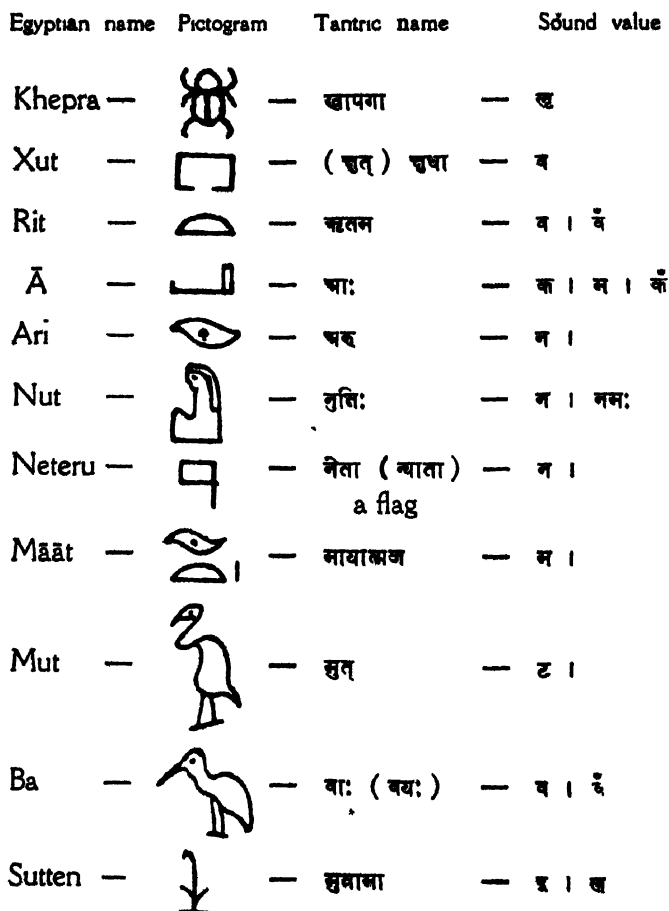 Egyptian name Pictogram Tantric name Sound value
Khepra — — खापगा —
Xut — — (क्षुत्) क्षुधा — व
Rit — — ऋतम — व । वँ
Ā — — आः — क । म । कँ
Ari — — — न ।
Nut — — नुतिः — न । नमः
Neteru — — नेता (न्याता) — न ।
a flag
Māāt — — मायात्मज — म ।
Mut — — मुत् — ट ।
Ba — — वाः (वयः) — व ।
Sutten — — —